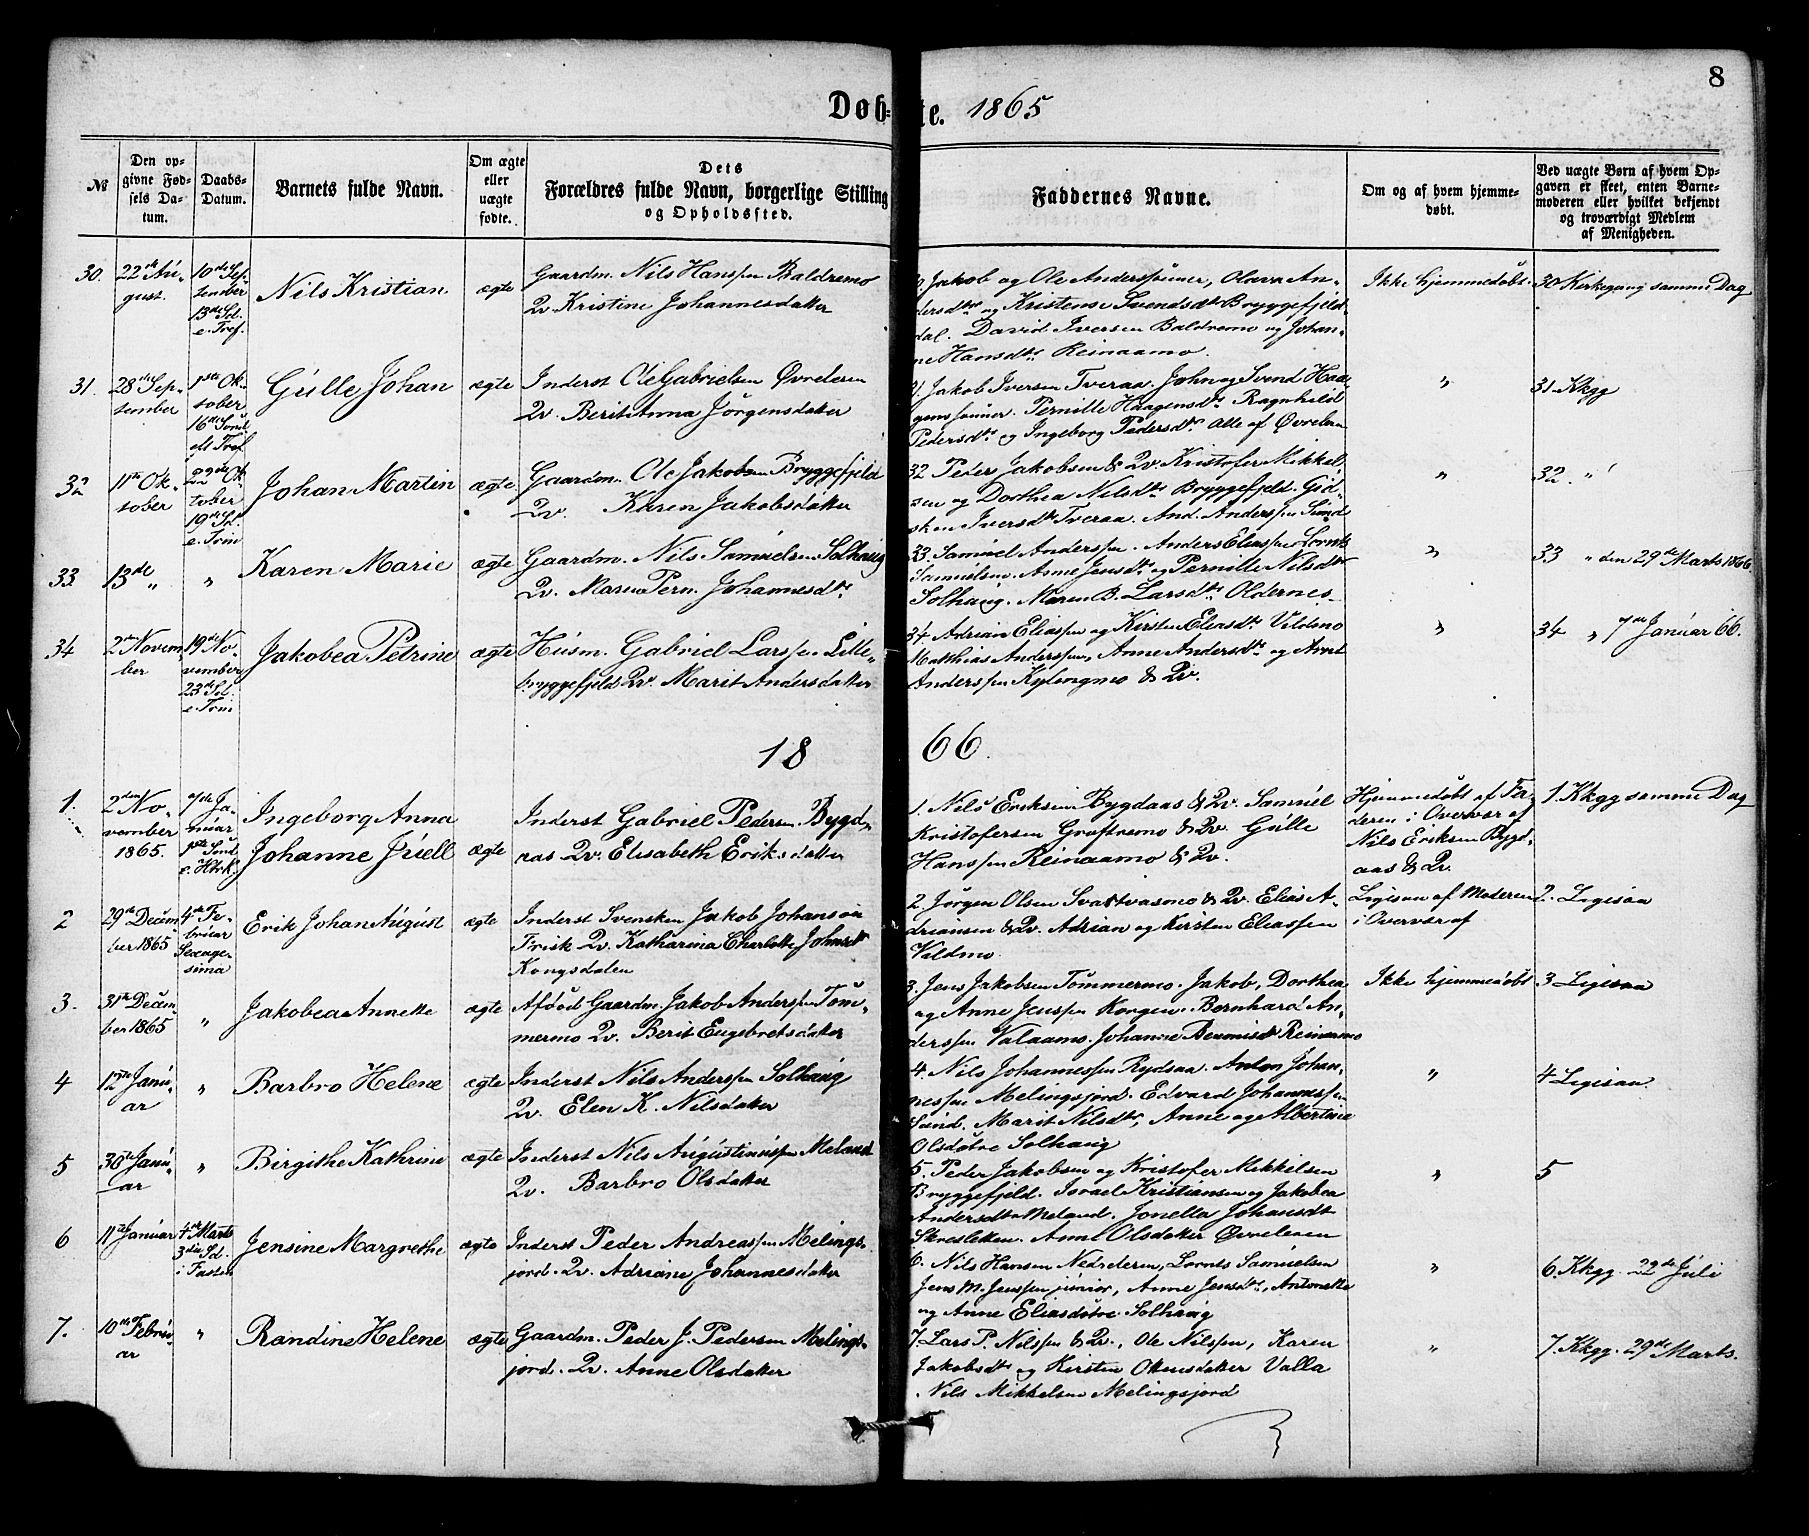 8
Døb- te. 1865
№
Den op-
givne Fød-
sels Da-
tum.
Daabs-
Datum.
Barnets fulde Navn.
Om ægte
eller
uægte
fødte.
Dets
Forældres fulde Navn, borgerlige Stilling
og Opholdssted.
Faddernes Navne.
Om og af hvem hjemme-
døbt.
Ved uægte Børn af hvem Op-
gaven er skeet, enten Barne-
moderen eller hvilket bekjendt
og troværdigt Medlem
af Menigheden.
30.
22de Au-
gust.
10de Sep-
tember
13de Sd.
e. Tref.
Nils Kristian
ægte
Gaardm. Nils Hanssen Baldremo
Qv. Kristine Johannesdatter
Jakob og Ole Anderssønner, Olava An-
dersdtr og Kristense Svendsdtr Bryggefjeld-
dal. David Iversen Baldremo og Johan-
ne Hansdtr Reinaamo.
Ikke hjemmedøbt.
30 Kirkegang samme Dag
31.
28de Sep-
tember
1ste Ok-
tober
16de Sønd.
eft Tref.
Gulle Johan
ægte
Inderst Ole Gabrielsen Øvrelsen
Qv. Berit Anna Jørgensdatter
31 Jakob Iversen Tveraa. John og Svend Haa-
genssønner. Pernille Haagensdtr Ragnhild
Pedersdtr og Ingeborg Pedersdtr Alle af Øvreleren
"
31. Kkgg
32
11te Ok-
tober
22de Ok-
tober
19de Sd.
e. Trin
Johan Martin
ægte
Gaardm. Ole Jakobsen Bryggefjeld
Qv. Karen Jakobsdatter
32 Peder Jakobsen & Qv. Kristofer Mikkel-
sen og Dorthea Nilsdtr Bryggefjeld. Gid-
sken Iversdtr Tveraa. And. Anderssen Sund
"
32. "
33
13de "
"
Karen Marie
ægte
Gaardm. Nils Samuelsen Solhaug
Qv. Maren Pern. Johannesdtr
33. Samuel Anderssen. Anders Eliassen Lornts
Samuelsen. Anne Jensdtr og Pernille Nilsdtr
Solhaug. Maren B. Larsdtr Oldernes
"
33 " den 29de Marts 1866.
34
2den Novem-
ber
19de No-
vember
23de Sd.
e. Trin
Jakobea Petrine
ægte
Husm. Gabriel Larssen Lille-
bryggefjeld Qv. Marit Andersdatter
34 Adrian Eliassen og Kirsten Eliasdtr Vildmo
Matthias Anderssen, Anne Andersdtr og Arnt
Anderssen Kjelengmo & Qv.
"
34 " 7de Januar 66.
18 66.
1.
2den No-
vember
1865.
7de Ja-
nuar
1ste Sønd.
e. H3rK.
Ingeborg Anna
Johanne Juell
ægte
Inderst Gabriel Pedersen Bygd-
aas Qv. Elisabeth Eriksdatter
1. Nils Eriksen Bygdaas & Qv. Samuel
Kristofersen Grøftremo & Qv. Gulle
Hanssen Reinaamo & Qv.
Hjemmedøbt af Fa-
deren i Overvær af
Nils Eriksen Bygd-
aas & Qv.
1. Kkgg samme Dag
2
29de Decem-
ber 1865
4de Fe-
bruar
Sexage-
sima
Erik Johan August
ægte
Inderst Svensken Jakob Johanson
Frisk Qv. Katharina Charlotte Johnsdtr
Kongsdalen
2 Jørgen Olsen Svartvasmo & Qv. Elias A-
driansen & Qv. Adrian og Kirsten Eliassen
Vildmo.
Ligesaa af Moderen
i Overvær af
2. Ligesaa
3.
31te Decem-
ber 1865
"
Jakobea Annette
ægte
Afdød Gaardm. Jakob Anderssen Tøm-
mermo Qv. Berit Engebretsdatter
3. Jens Jakobsen Tømmermo. Jakob, Dorthea
og Anne Jenssen Kongen. Bernhard An-
derssen Valaamo. Johanne Reinaamo
Ikke hjemmedøbt
3 Ligesaa
4
12te Janu-
ar
"
Barbro Helene
ægte
Inderst Nils Anderssen Solhaug
Qv. Elen K. Nilsdatter
4. Nils Johannessen Rydsaa. Anton Johan-
nessen Melingsjord. Edvard Johannessen
Sund. Marit Nilsdtr, Anne og Albertine
Olsdøtre Solhaug
"
4 Ligesaa.
5
30te Janu-
ar
"
Birgithe Kathrine
ægte
Inderst Nils Augustinussen Meland
Qv. Barbro Olsdatter
5. Peder Jakobsen og Kristofer Mikkelsen
Bryggefjeld. Israel Kristiansen og Jakobea
Andersdtr Meland. Jonetta Johansdt
Skresletten. Anne Olsdatter Øvreleren
"
5
6
11te Januar
4de Marts
3die Sd.
i Fasten
Jensine Margrethe
ægte
Inderst Peder Andreassen Melings-
jord. Qv. Adriane Johannesdatter
6. Nils Hansen Nedreleren, Lornts Samuelsen
Jens M. Jenssen junior, Anne Jensdtr, Antonette
og Anne Eliasdøtre Solhaug
"
6. Kkgg. 22de Juli
7.
10de Febru-
ar
"
Randine Helene
ægte
Gaardm. Peder J. Pedersen Melings-
jord. Qv. Anne Olsdatter
7. Lars P. Nilssen & Qv., Ole Nilssen, Karen
Jakobsdtr og Kirsten Olausdatter Valla
Nils Mikkelsen Melingsjord
"
7. Kkgg. 29de Marts.